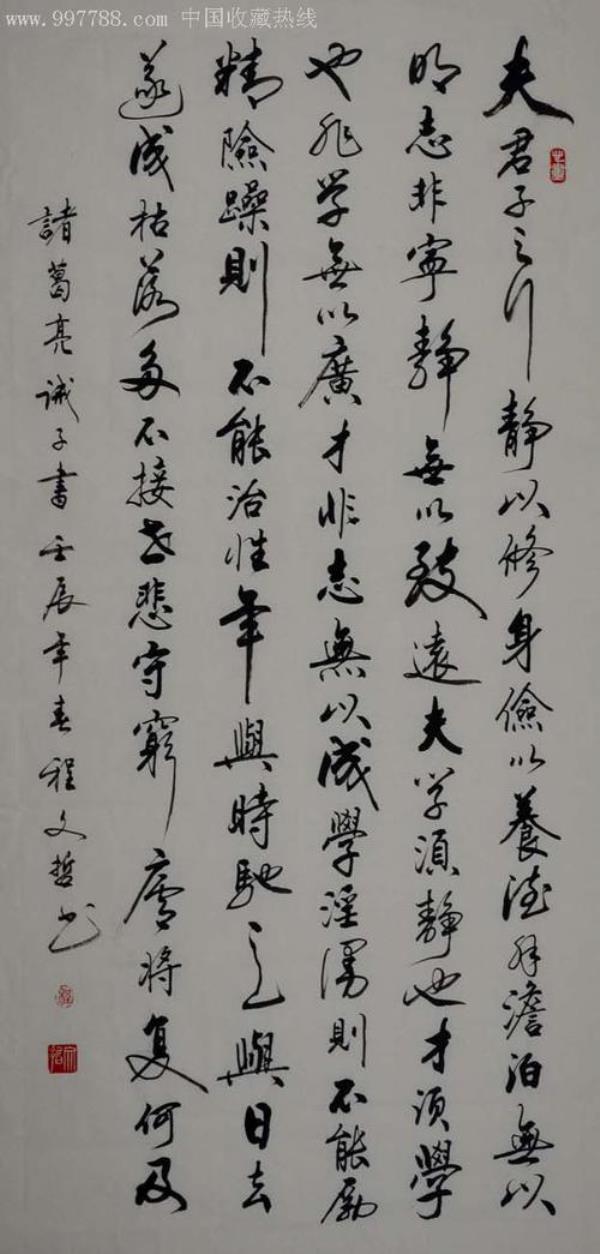 www.997788.com 中国收藏热线
夫君子之行静以修身儉以養德非澹泊無以
明志非寧静無以致遠夫学須静也才須學
也非学無以廣才非志無以成學淫漫則不能勵
精險躁則不能治性年與時馳意與日去
遂成枯落多不接世悲守窮廬將复何及
諸葛亮诫子書壬辰年春程文哲书